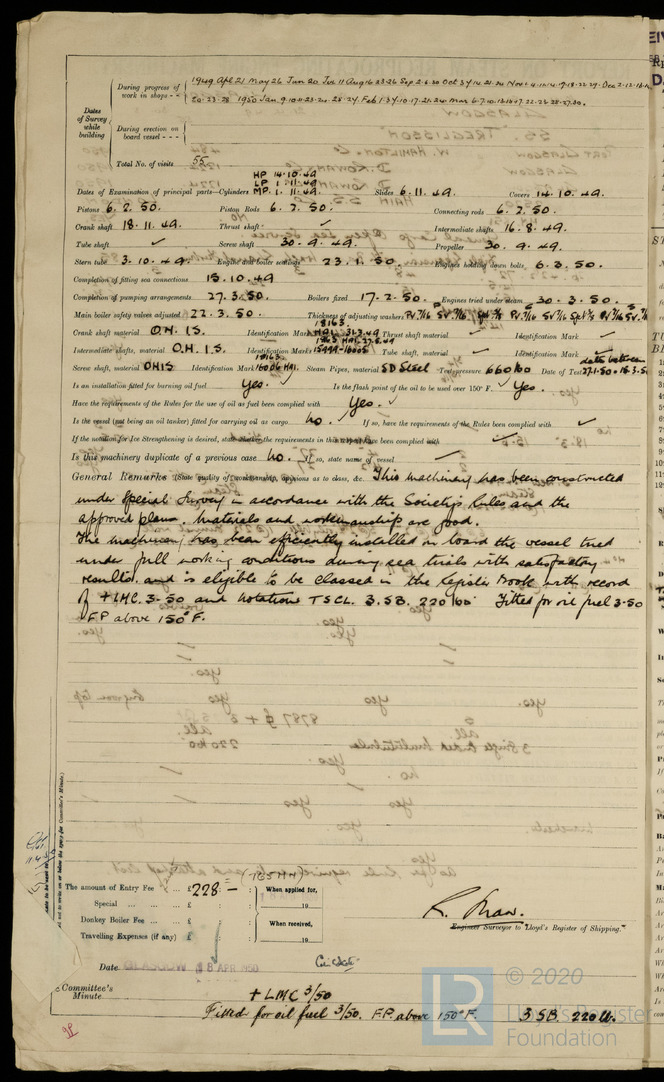 Dates of Survey while building
During progress of work in shops - - 1949 Apl 21 May 26 Jun 20 Jul 11 Aug 16 23 26 Sep 2.6.30 Oct 3 14 21.24 Nov 1 4.10.14.17.18.22.29. Dec 2.12.16
20.23.28 1950 Jan 9.10.11.23.24.28.27 Feb 1.3.7.10.17.21.24 Mar 6.7.10 22.26.28.27.30.
During erection on board vessel - - -
Total No. of visits 55
HP 14.10.49
LP 1.11.49
Dates of Examination of principal parts—Cylinders MP. 1.11.49. Slides 6.11.49. Covers 14.10.49.
Pistons 6.2.50. Piston Rods 6.2.50. Connecting rods 6.2.50.
Crank shaft 18.11.49. Thrust shaft ✓ Intermediate shafts 16.8.49.
Tube shaft ✓ Screw shaft 30.9.49. Propeller 30.9.49.
Stern tube 3.10.49. Engine and boiler seatings 23.1.50. Engines holding down bolts 6.3.50.
Completion of fitting sea connections 15.10.49
Completion of pumping arrangements 27.3.50. Boilers fixed 17.2.50. Engines tried under steam 30.3.50.
Main boiler safety valves adjusted 22.3.50. Thickness of adjusting washers
Crank shaft material O.H.I.S. Identification Mark 18163 HAI. 31.3.49 Thrust shaft material ✓ Identification Mark ✓
Intermediate shafts, material O.H.I.S. Identification Marks 15999-16005 Tube shaft, material ✓ Identification Mark ✓
Screw shaft, material OHIS Identification Mark 16006 HAI. Steam Pipes, material SD Steel Test pressure 660 lbs Date of Test dates between 27.1.50 & 18.3.50
Is an installation fitted for burning oil fuel Yes. Is the flash point of the oil to be used over 150° F. ✓ Yes.
Have the requirements of the Rules for the use of oil as fuel been complied with Yes. ✓
Is the vessel (not being an oil tanker) fitted for carrying oil as cargo No. ✓ If so, have the requirements of the Rules been complied with ✓
If the notation for Ice Strengthening is desired, state whether the requirements in this respect have been complied with ✓
Is this machinery duplicate of a previous case No. If so, state name of vessel ✓
General Remarks (State quality of workmanship, opinions as to class, &c. This machinery has been constructed
under Special Survey in accordance with the Society's Rules and the
approved plans, materials and workmanship are good.
The machinery has been efficiently installed on board the vessel tried
under full working conditions during sea trials with satisfactory
results, and is eligible to be classed in the Register Book with record
of + LMC. 3-50 and notation TSCL. 3.SB. 220 lbs. Fitted for oil fuel 3-50
F.P above 150°F.
The amount of Entry Fee ... £ 228:-
Special ... ... £
Donkey Boiler Fee ... £
Travelling Expenses (if any) £
When applied for,
19
When received,
19
R. Shaw.
Engineer Surveyor to Lloyd's Register of Shipping.
Date GLASGOW 18 APR 1950
Committee's Minute
+ LMC 3/50
Fitted for oil fuel 3/50. F.P. above 150°F. 3 SB. 220 lb.
LR © 2020
Lloyd's Register
Foundation